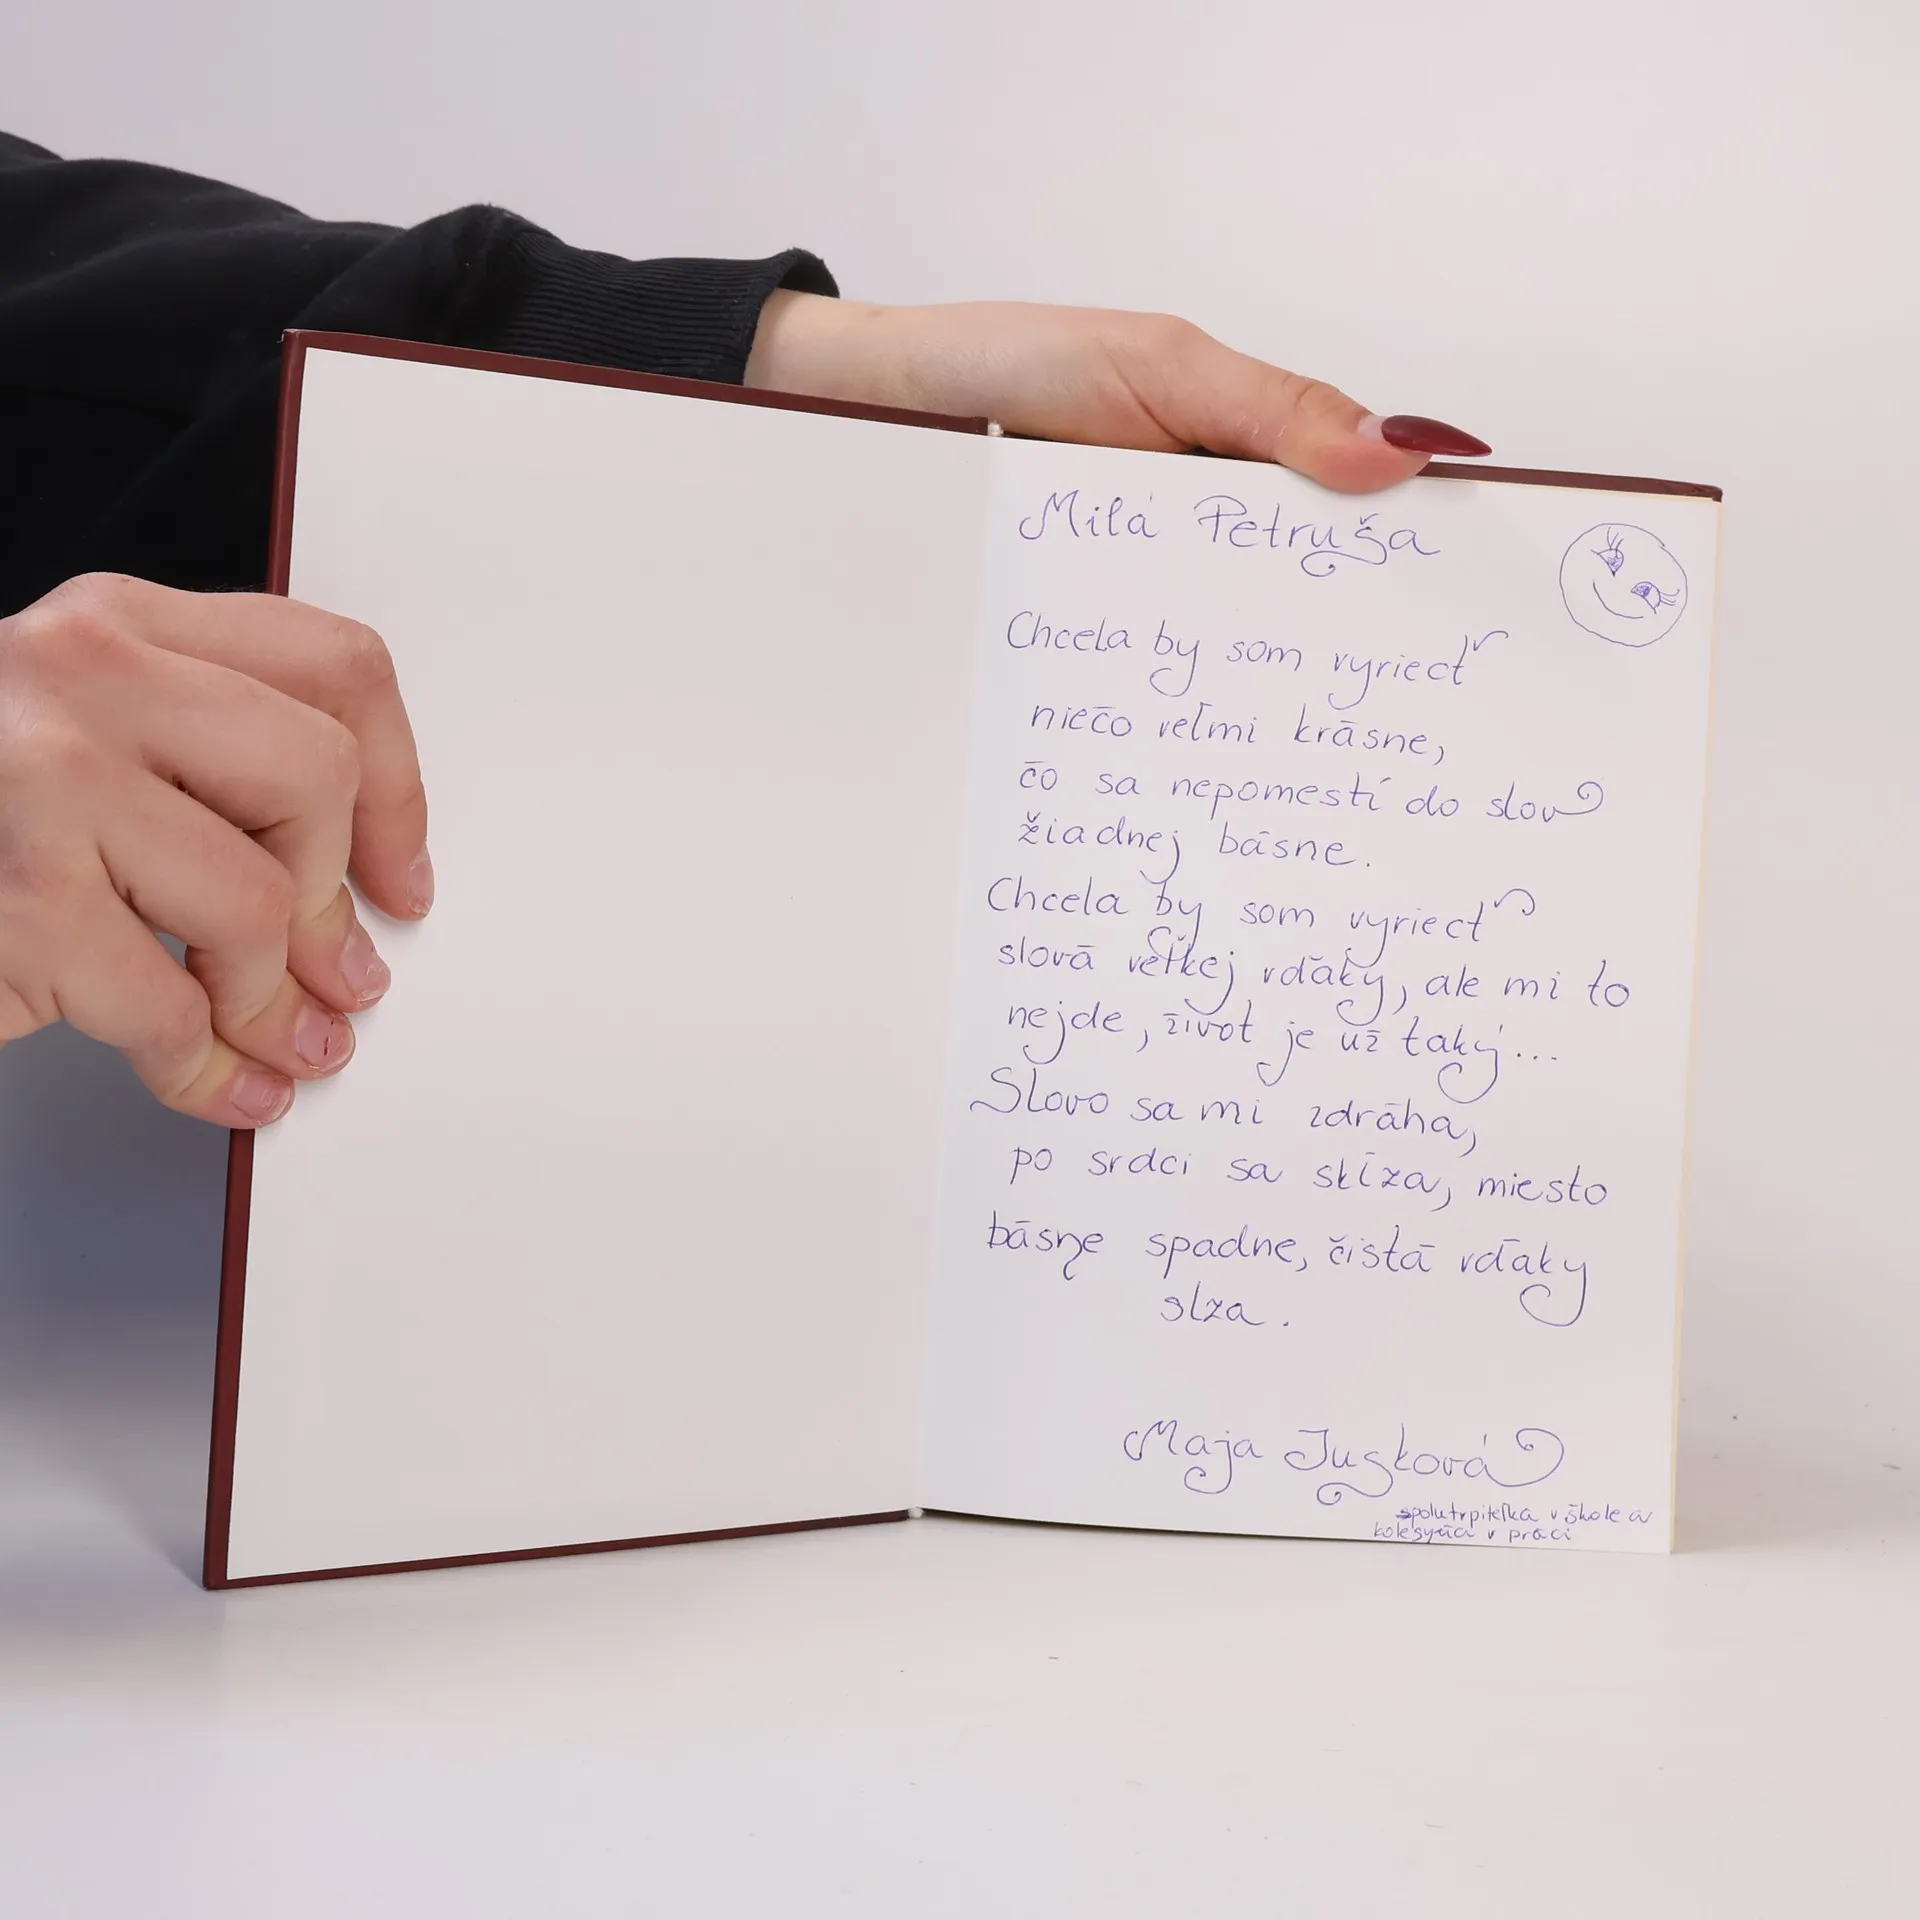 Milá Petruša
Chcela by som vyriecť
niečo veľmi krásne,
čo sa nepomestí do slov
žiadnej básne.
Chcela by som vyriecť
slová veľkej vďaky, ale mi to
nejde, život je už taký...
Slovo sa mi zdráha,
po srdci sa skĺza, miesto
básne spadne, čistá vďaky
slza.
Maja Jusková
spolutrpiteľka v škole a
kolegyňa v práci